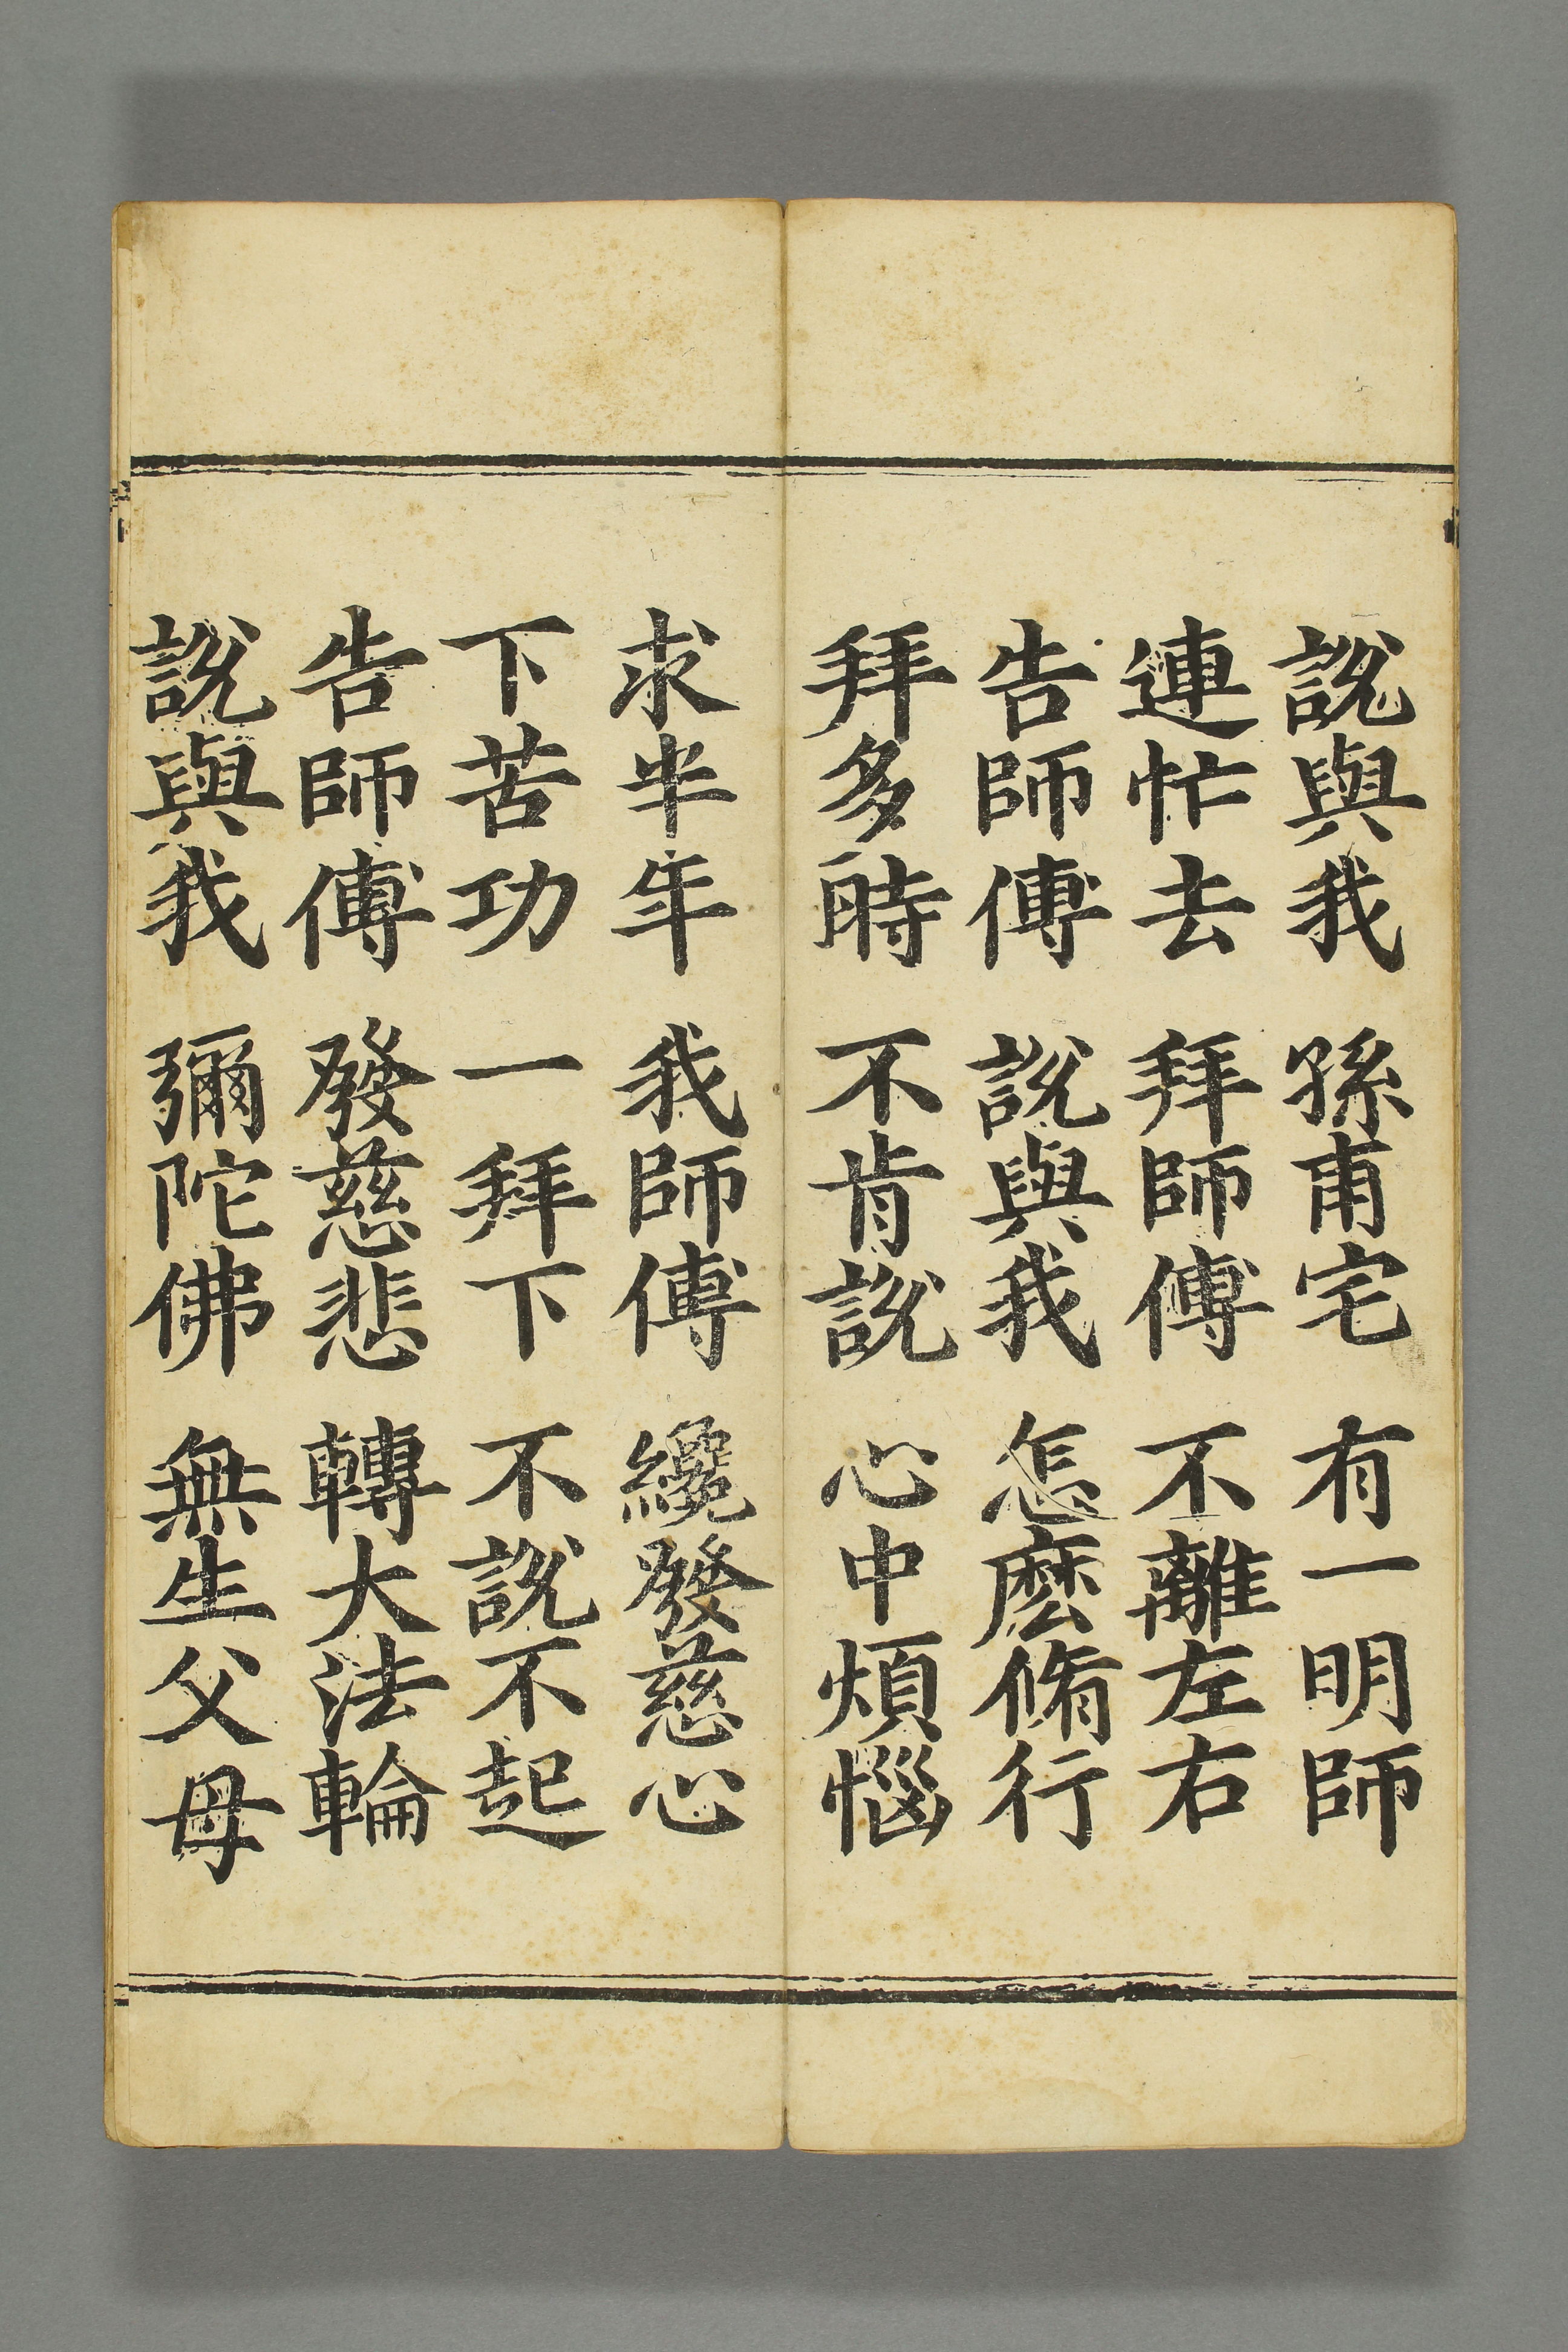 說與我 孫甫宅 有一明師
連忙去 拜師傅 不離左右
告師傅 說與我 怎麽脩行
拜多時 不肯說 心中煩惱
求半年 我師傅 纔發慈心
下苦功 一拜下 不說不起
告師傅 發慈悲 轉大法輪
說與我 彌陀佛 無生父母